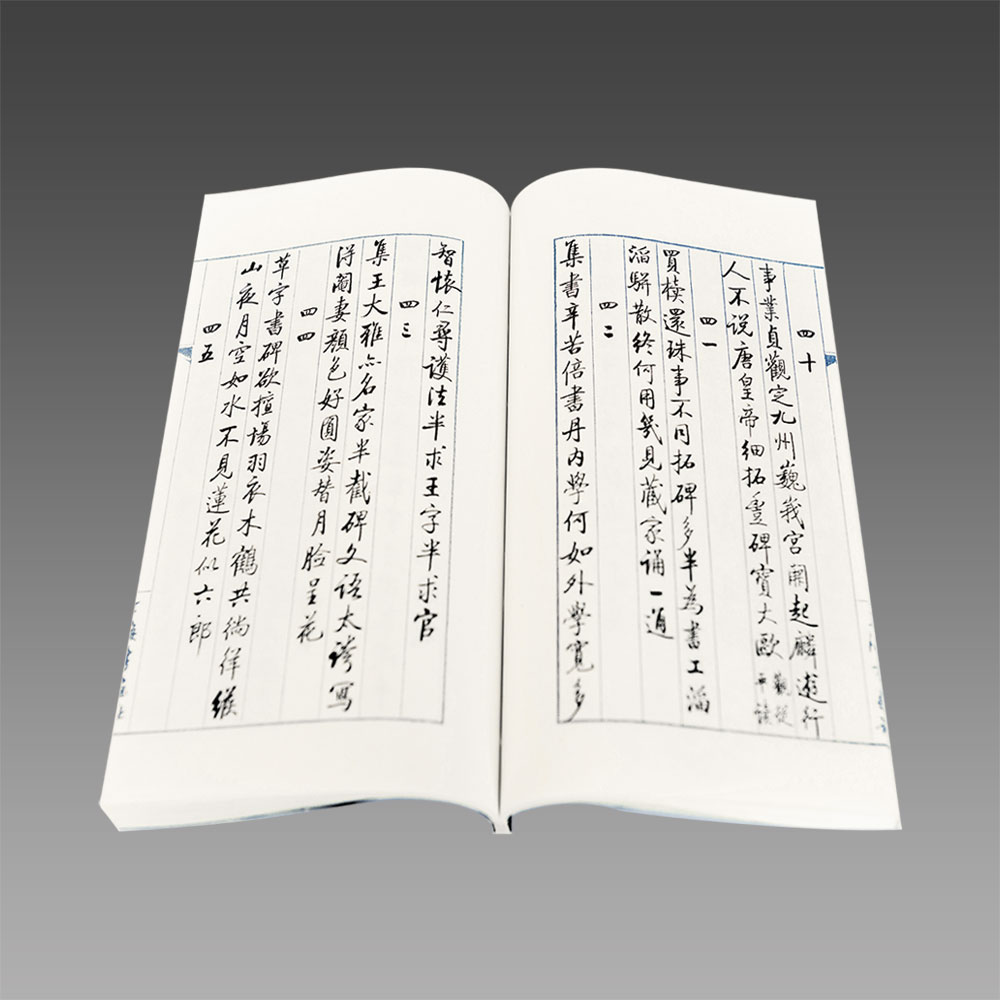 四十
事業貞觀定九州巍峩宮闕起麟遊行
人不説唐皇帝細拓豐碑寶大歐觀從平讀
四一
買櫝還珠事不同拓碑多半為書工滔
滔駢散終何用幾見藏家誦一通
四二
集書辛苦倍書丹内學何如外學寬多
智懷仁尋護法半求王字半求官
四三
集王大雅亦名家半截碑文語太誇寫
得閻妻顏色好圓姿替月臉呈花
四四
草字書碑欲擅場羽衣木鶴共徜徉緱
山夜月空如水不見蓮花似六郎
四五